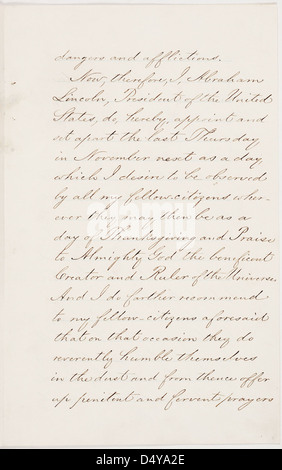 dangers and afflictions.
Now, therefore, I, Abraham
Lincoln, President of the United
States, do, hereby, appoint and
set apart the last Thursday
in November next as a day
which I desire to be observed
by all my fellow-citizens wher-
ever they may then be as a
day of Thanksgiving and Praise
to Almighty God the beneficent
Creator and Ruler of the Universe.
And I do farther recommend
to my fellow-citizens aforesaid
that on that occasion they do
reverently humble themselves
in the dust and from thence offer
up penitent and fervent prayers
alamy
alamy
Image ID: D4YA2E
www.alamy.com